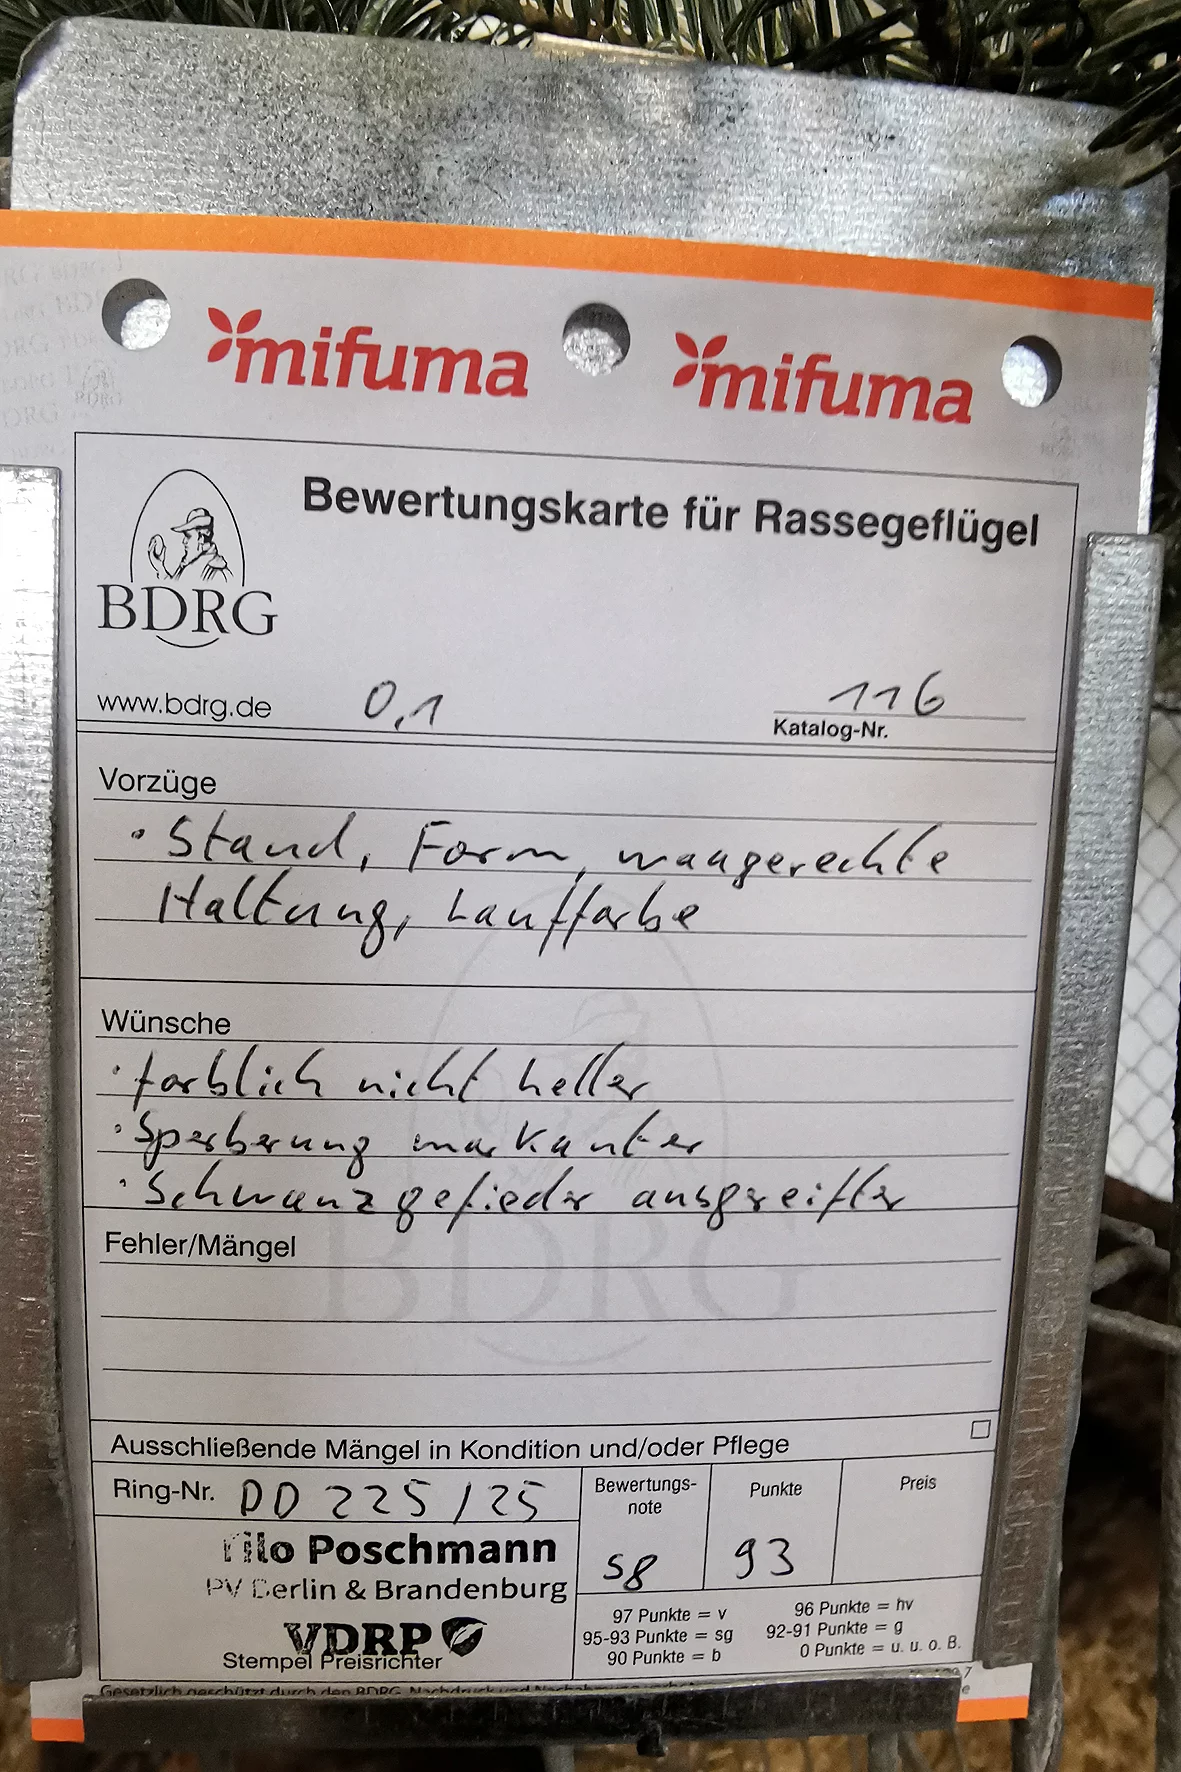 mifuma mifuma
Bewertungskarte für Rassegeflügel
BDRG
www.bdrg.de 0,1 116
Katalog-Nr.
Vorzüge
· Stand, Form, waagerechte
Haltung, Lauffarbe
Wünsche
· farblich nicht heller
· Sperberung markanter
· Schwanzgefieder ausgereifter
Fehler/Mängel
BDRG
Ausschließende Mängel in Kondition und/oder Pflege
Ring-Nr. DD 225/25
Bewertungs-
note
sg
Punkte
93
Preis
Poschmann
PV Berlin & Brandenburg
VDRP
Stempel Preisrichter
97 Punkte = v 96 Punkte = hv
95-93 Punkte = sg 92-91 Punkte = g
90 Punkte = b 0 Punkte = u. u. o. B.
Gesetzlich geschützt durch den BDRG. Nachdruck und